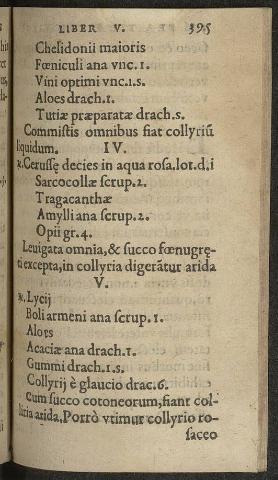 LIBER V. 395
Chelidonii maioris
Fœniculi ana vnc.1.
Vini optimi vnc.1.s.
Aloes drach.1.
Tutiæ præparatæ drach.s.
Commistis omnibus fiat collyriū
liquidum. IV.
℞.Cerussę decies in aqua rosa.lot.d.i
Sarcocollæ scrup.2.
Tragacanthæ
Amylli ana scrup.2.
Opii gr.4.
Leuigata omnia,& succo fœnugrę-
ti excepta,in collyria digerãtur arida
V.
℞.Lycij
Boli armeni ana scrup.1.
Aloes
Acaciæ ana drach.1.
Gummi drach.1.s.
Collyrij è glaucio drac.6.
Cum succo cotoneorum,fiant col-
lyria arida,Porrò vtimur collyrio ro-
saceo